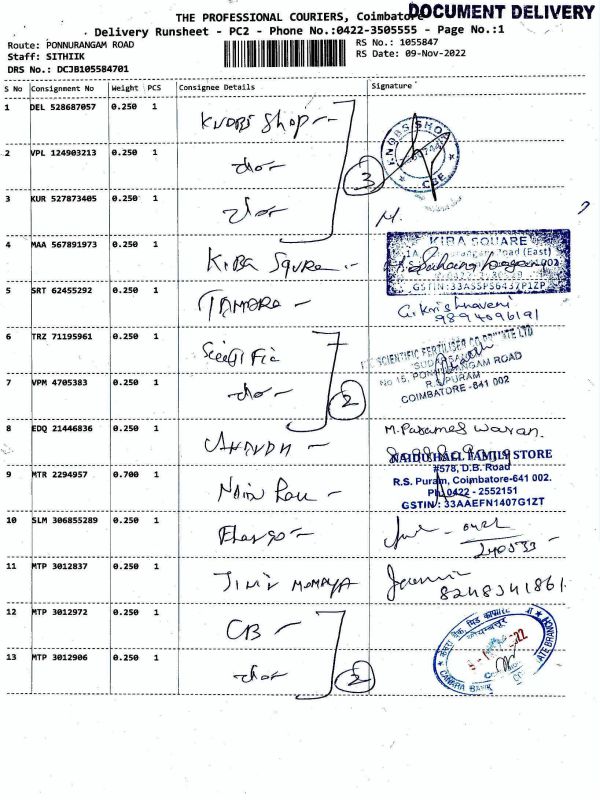 DOCUMENT DELIVERY
THE PROFESSIONAL COURIERS, Coimbatore
Delivery Runsheet - PC2 - Phone No.:0422-3505555 - Page No.:1
Route: PONNURANGAM ROAD
RS No.: 1055847
Staff: SITHIIK
RS Date: 09-Nov-2022
DRS No.: DCJB105584701
S No Consignment No Weight PCS Consignee Details Signature
1 DEL 528687057 0.250 1 KNOBS Shop
KNOBS SHOP
CBE
2 VPL 124903213 0.250 1
3
3 KUR 527873405 0.250 1
M.
4 MAA 567891973 0.250 1 KIBA SQURE
KIBA SQUARE
Road (East)
GSTIN:33ASSPS6437P1ZP
5 SRT 62455292 0.250 1 TAMARA
G. Krishnaveni
9894096191
6 TRZ 71195961 0.250 1
SCIENTIFIC FERTILISER CO PRIVATE LTD
No 15, PONNURANGAM ROAD
R.S. PURAM
COIMBATORE -641 002
7 VPM 4705383 0.250 1
2
8 EDQ 21446836 0.250 1
M. Parameswaran.
9 MTR 2294957 0.700 1
NAIDU HALL FAMILY STORE
#578, D.B. Road
R.S. Puram, Coimbatore-641 002.
Ph: 0422 - 2552151
GSTIN: 33AAEFN1407G1ZT
10 SLM 306855289 0.250 1
11 MTP 3012837 0.250 1
8248341861
12 MTP 3012972 0.250 1 CB
CANARA BANK
13 MTP 3012906 0.250 1
2